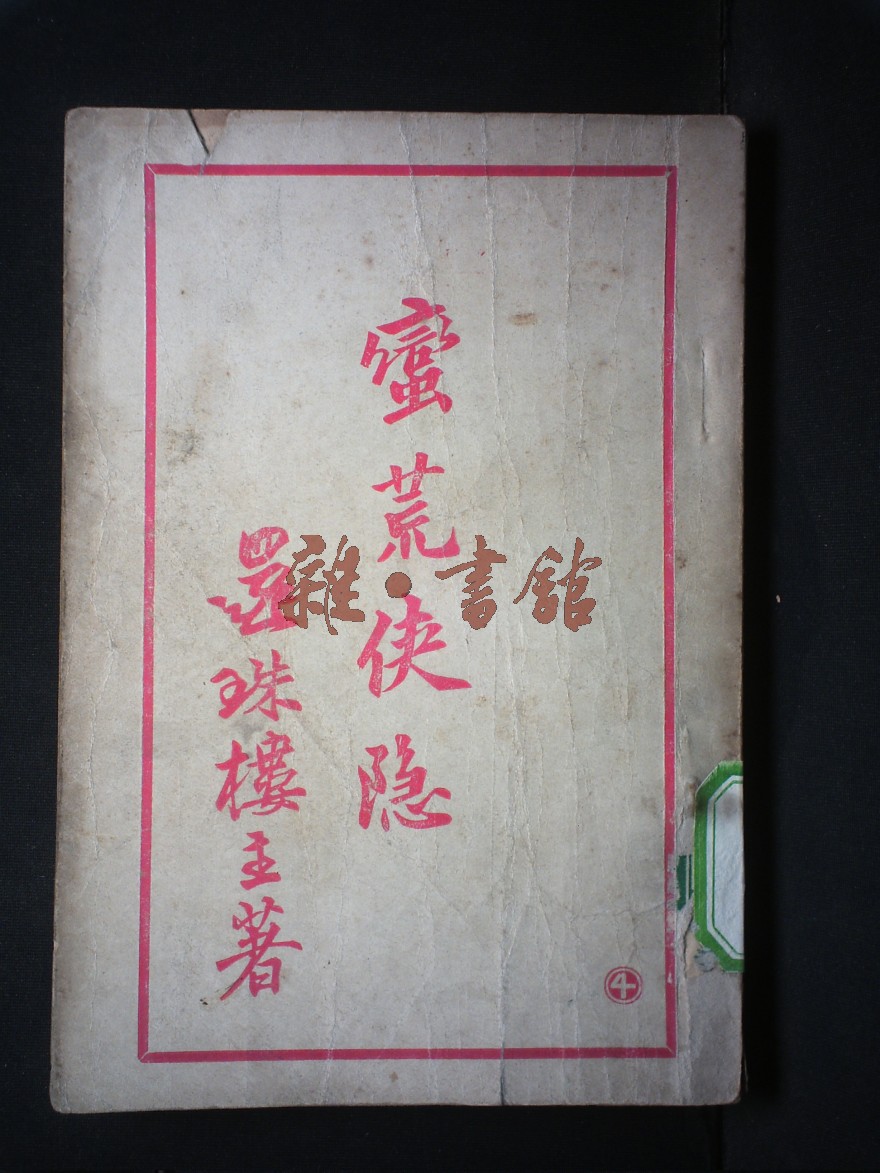 蠻荒侠隐
還珠樓主著
雜·書館
4